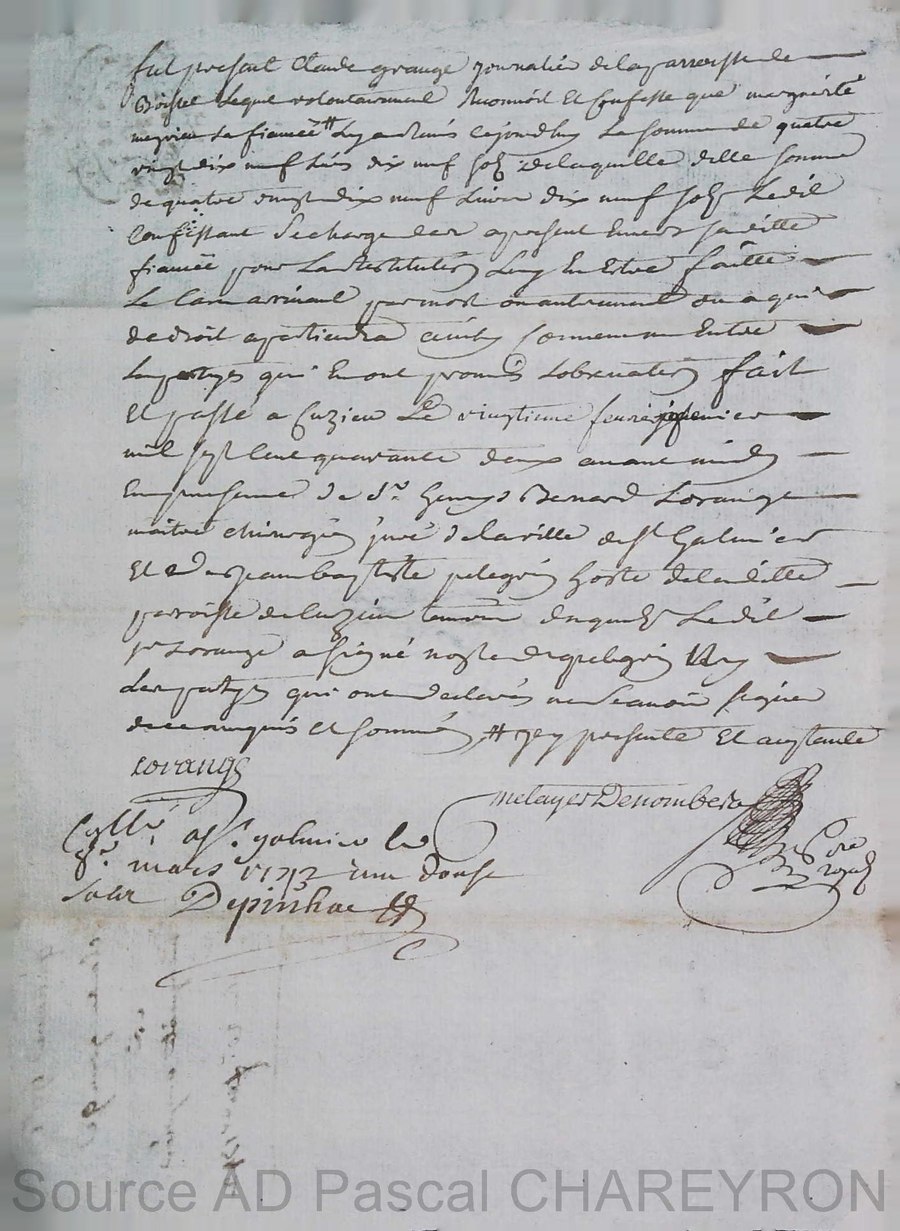 fut present Claude grange journalier de la parroisse de
Boisset lequel volontairement Reconnoit Et Confesse que marguerite
meyrieu sa fiancée # luy a Remis cejourdhuy la somme de quatre
vingt dix neuf livres dix neuf sols de laquelle ditte somme
de quatre vingt dix neuf Livres dix neuf sols Ledit
Confessant se charge des a present Envers sa ditte
fiancée pour La Restitution luy En Estre faitte
le Cas arrivant par mort ou autrement ou a qui
de droit apartiendra ainsy Convenu Entre
Les partyes qui En ont promis Lobservation fait
Et passé a Cuzieu Le vingtieme
mil sept Cent quarante deux avant midy
En presence de Sr Benard Lorange
maitre chirurgien juré de la ville de St Galmier
Et de jean baptiste pelegrin hoste de la ditte
parroisse de Cuzieu temoin desquels Ledit
sr Lorange a signé non ledit pelegrin Ny
Les partyes qui ont declarés ne scavoir signer
de ce enquis et sommés # icy presente Et acceptante
Lorange
metayer Denombera
Collé a St galmier le
mars 1742 douse
sols Depinhac
Nore
Royal
Source AD Pascal CHAREYRON